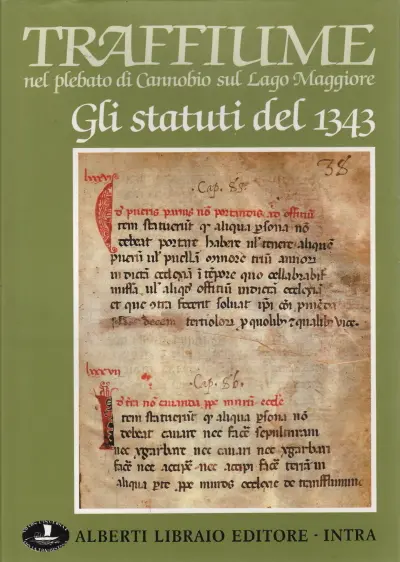 TRAFFIUME
nel plebato di Cannobio sul Lago Maggiore
Gli statuti del 1343
38
lxxxvj
Cap. 85.
De pueris parvis nō portandis ad officiū
Item statuerūt qr aliqua psona nō
debeat portare habere ul' tenere aliquē
puerū ul' puellā minorē triū annorū
in dictā ecclexiā ī tēpore quo cellabrabit
missā ul' aliqd' officiū in dictā ecclexiā
et que
tertiolorū p quolibz z qualibz vice.
lxxxvij
Cap. 86.
Item statuerūt qr aliqua psona nō
debeat cavare nec facē sepulturam
nec xgarbare nec cavari nec xgarbari
facē nec accipē nec accipi facē terrā in
aliqua pte ppe muros ecclexie de
ALBERTI LIBRAIO EDITORE · INTRA